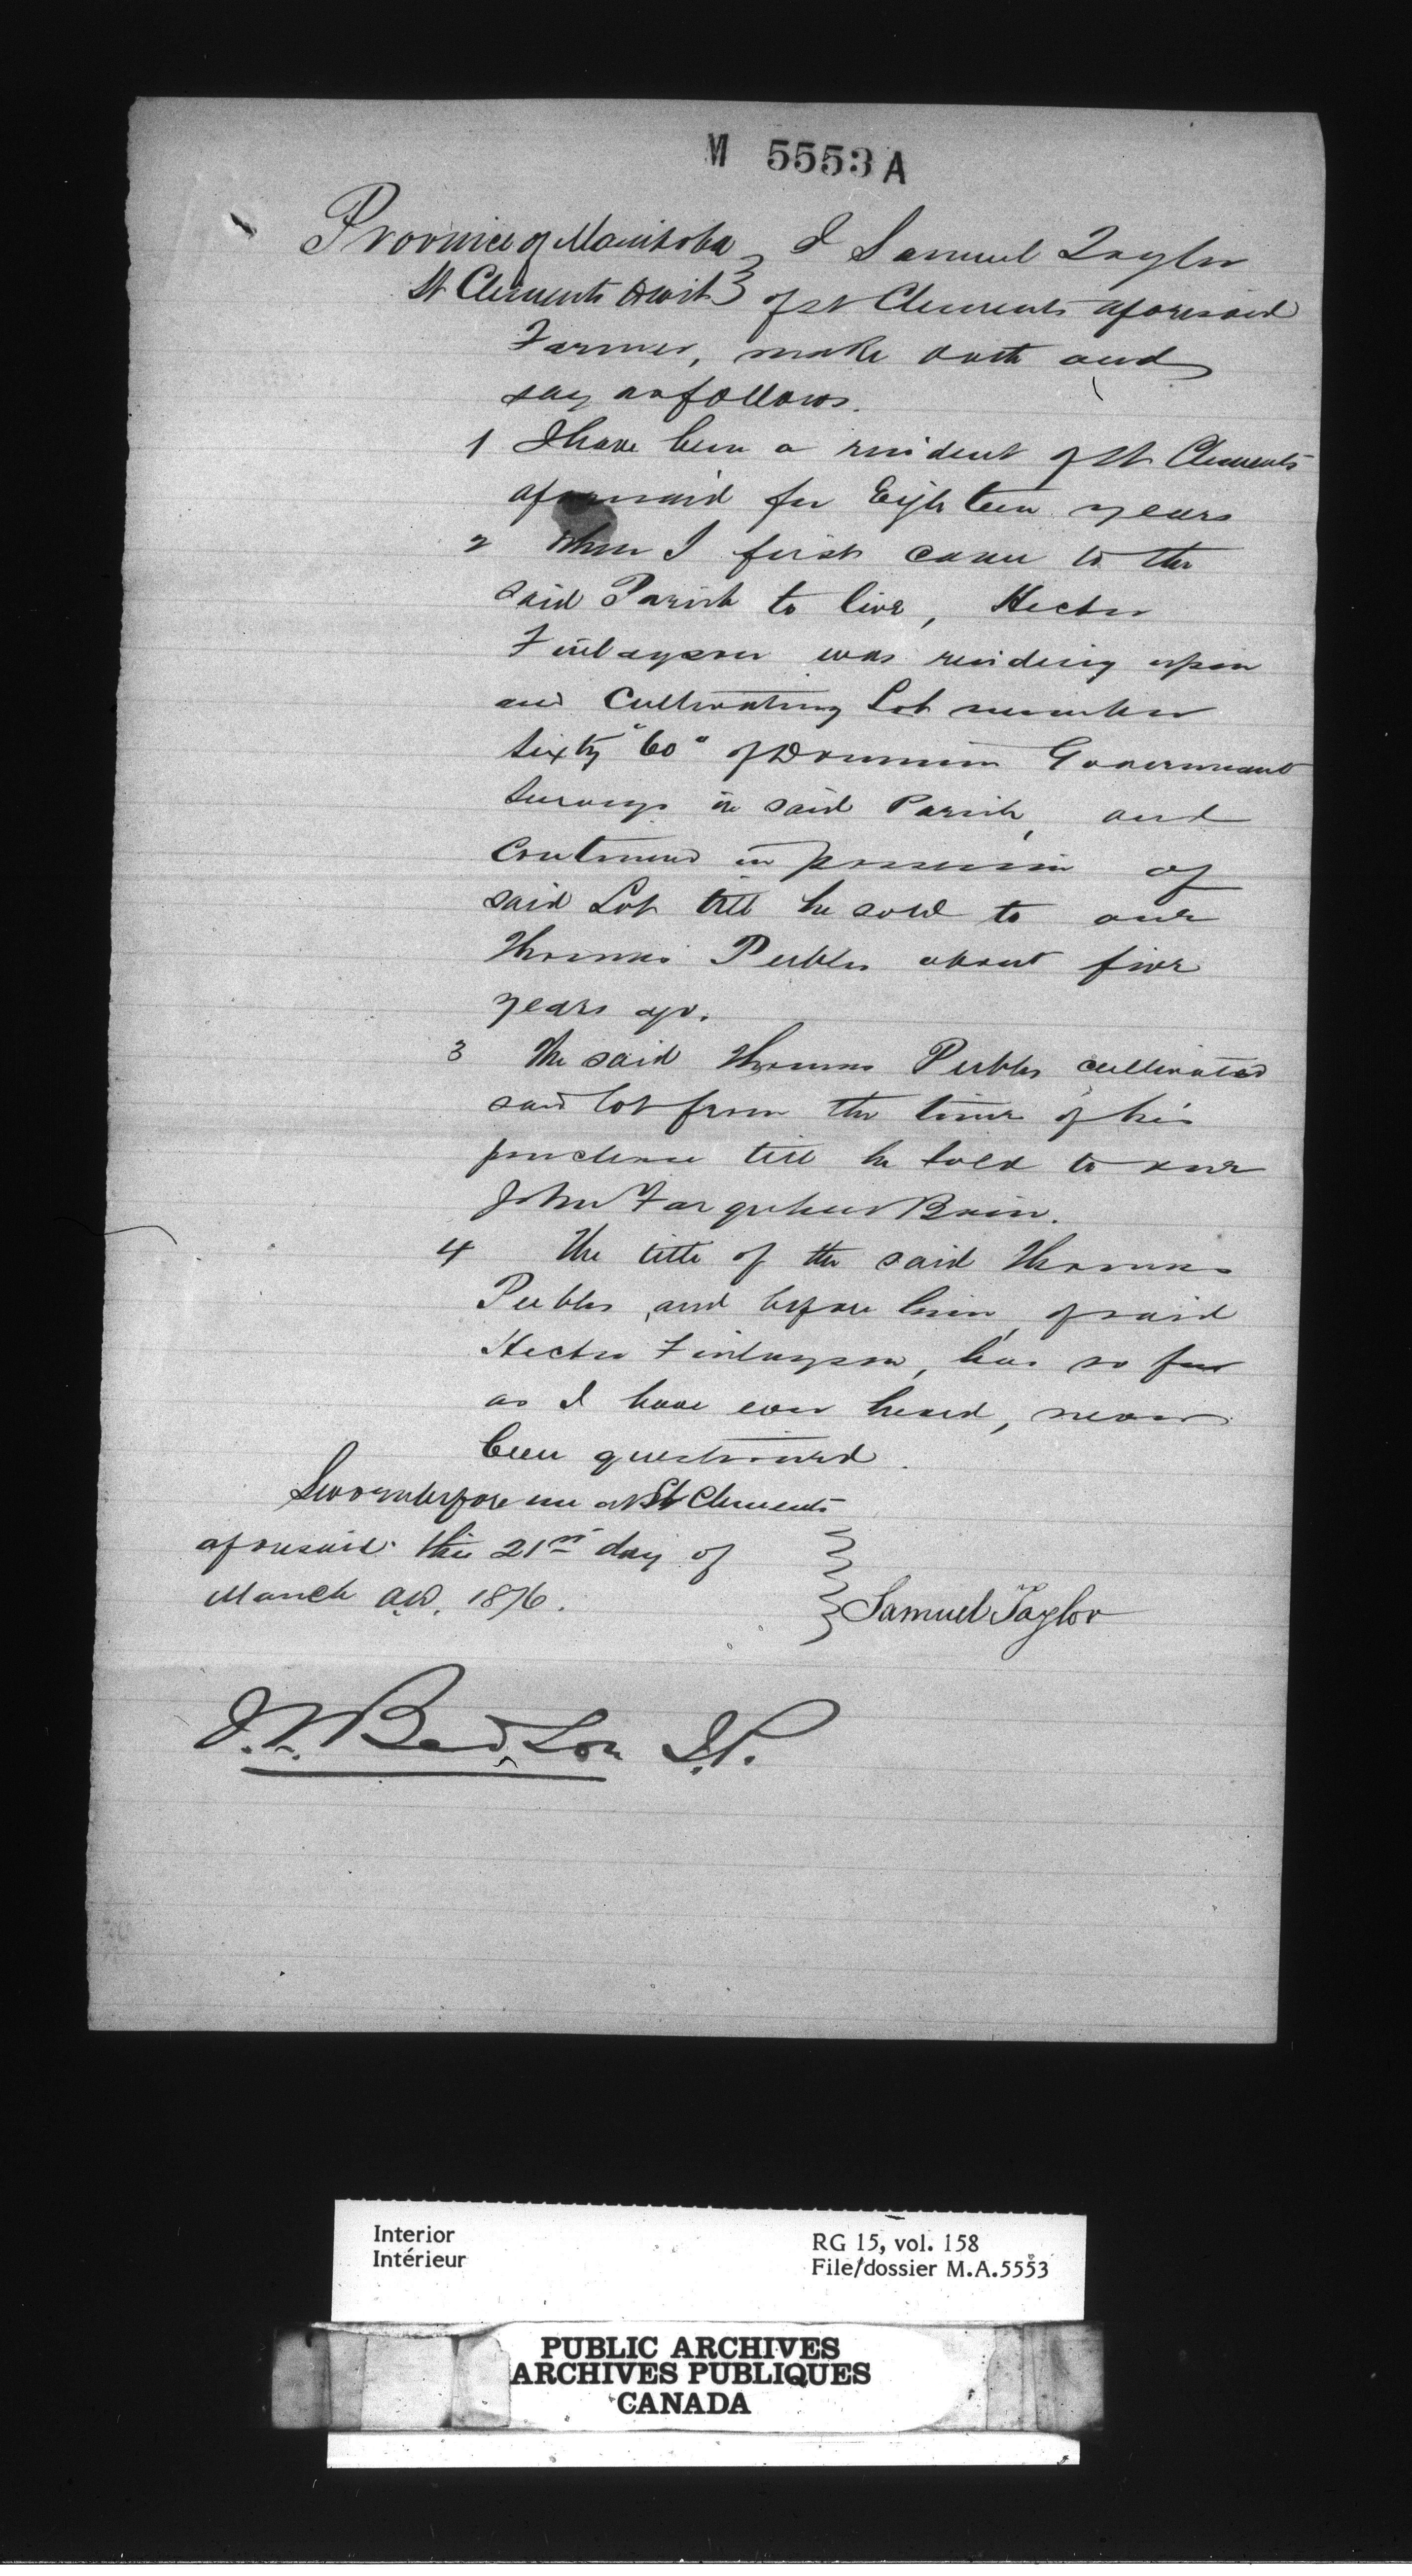 M 5553 A
Province of Manitoba } I Samuel Taylor
St Clements to wit } of St Clements aforesaid
Farmer, make oath and
say as follows.
1 I have been a resident of St Clements
aforesaid for Eighteen years
2 When I first came to the
said Parish to live, Hector
Finlayson was residing upon
and Cultivating Lot number
sixty "60" of Dominion Government
Surveys in said Parish, and
continued in possession of
said Lot till he sold to one
Thomas Peebles about five
years ago.
3 The said Thomas Peebles cultivated
said lot from the time of his
purchase till he sold to one
John Farquhar Bain.
4 The title of the said Thomas
Peebles, and before him, of said
Hector Finlayson, has so far
as I have ever heard, never
been questioned.
Sworn before me at St Clements
aforesaid this 21st day of
March A.D. 1876.
Samuel Taylor
Bedson J.P.
Interior
Intérieur
RG 15, vol. 158
File/dossier M.A.5553
PUBLIC ARCHIVES
ARCHIVES PUBLIQUES
CANADA